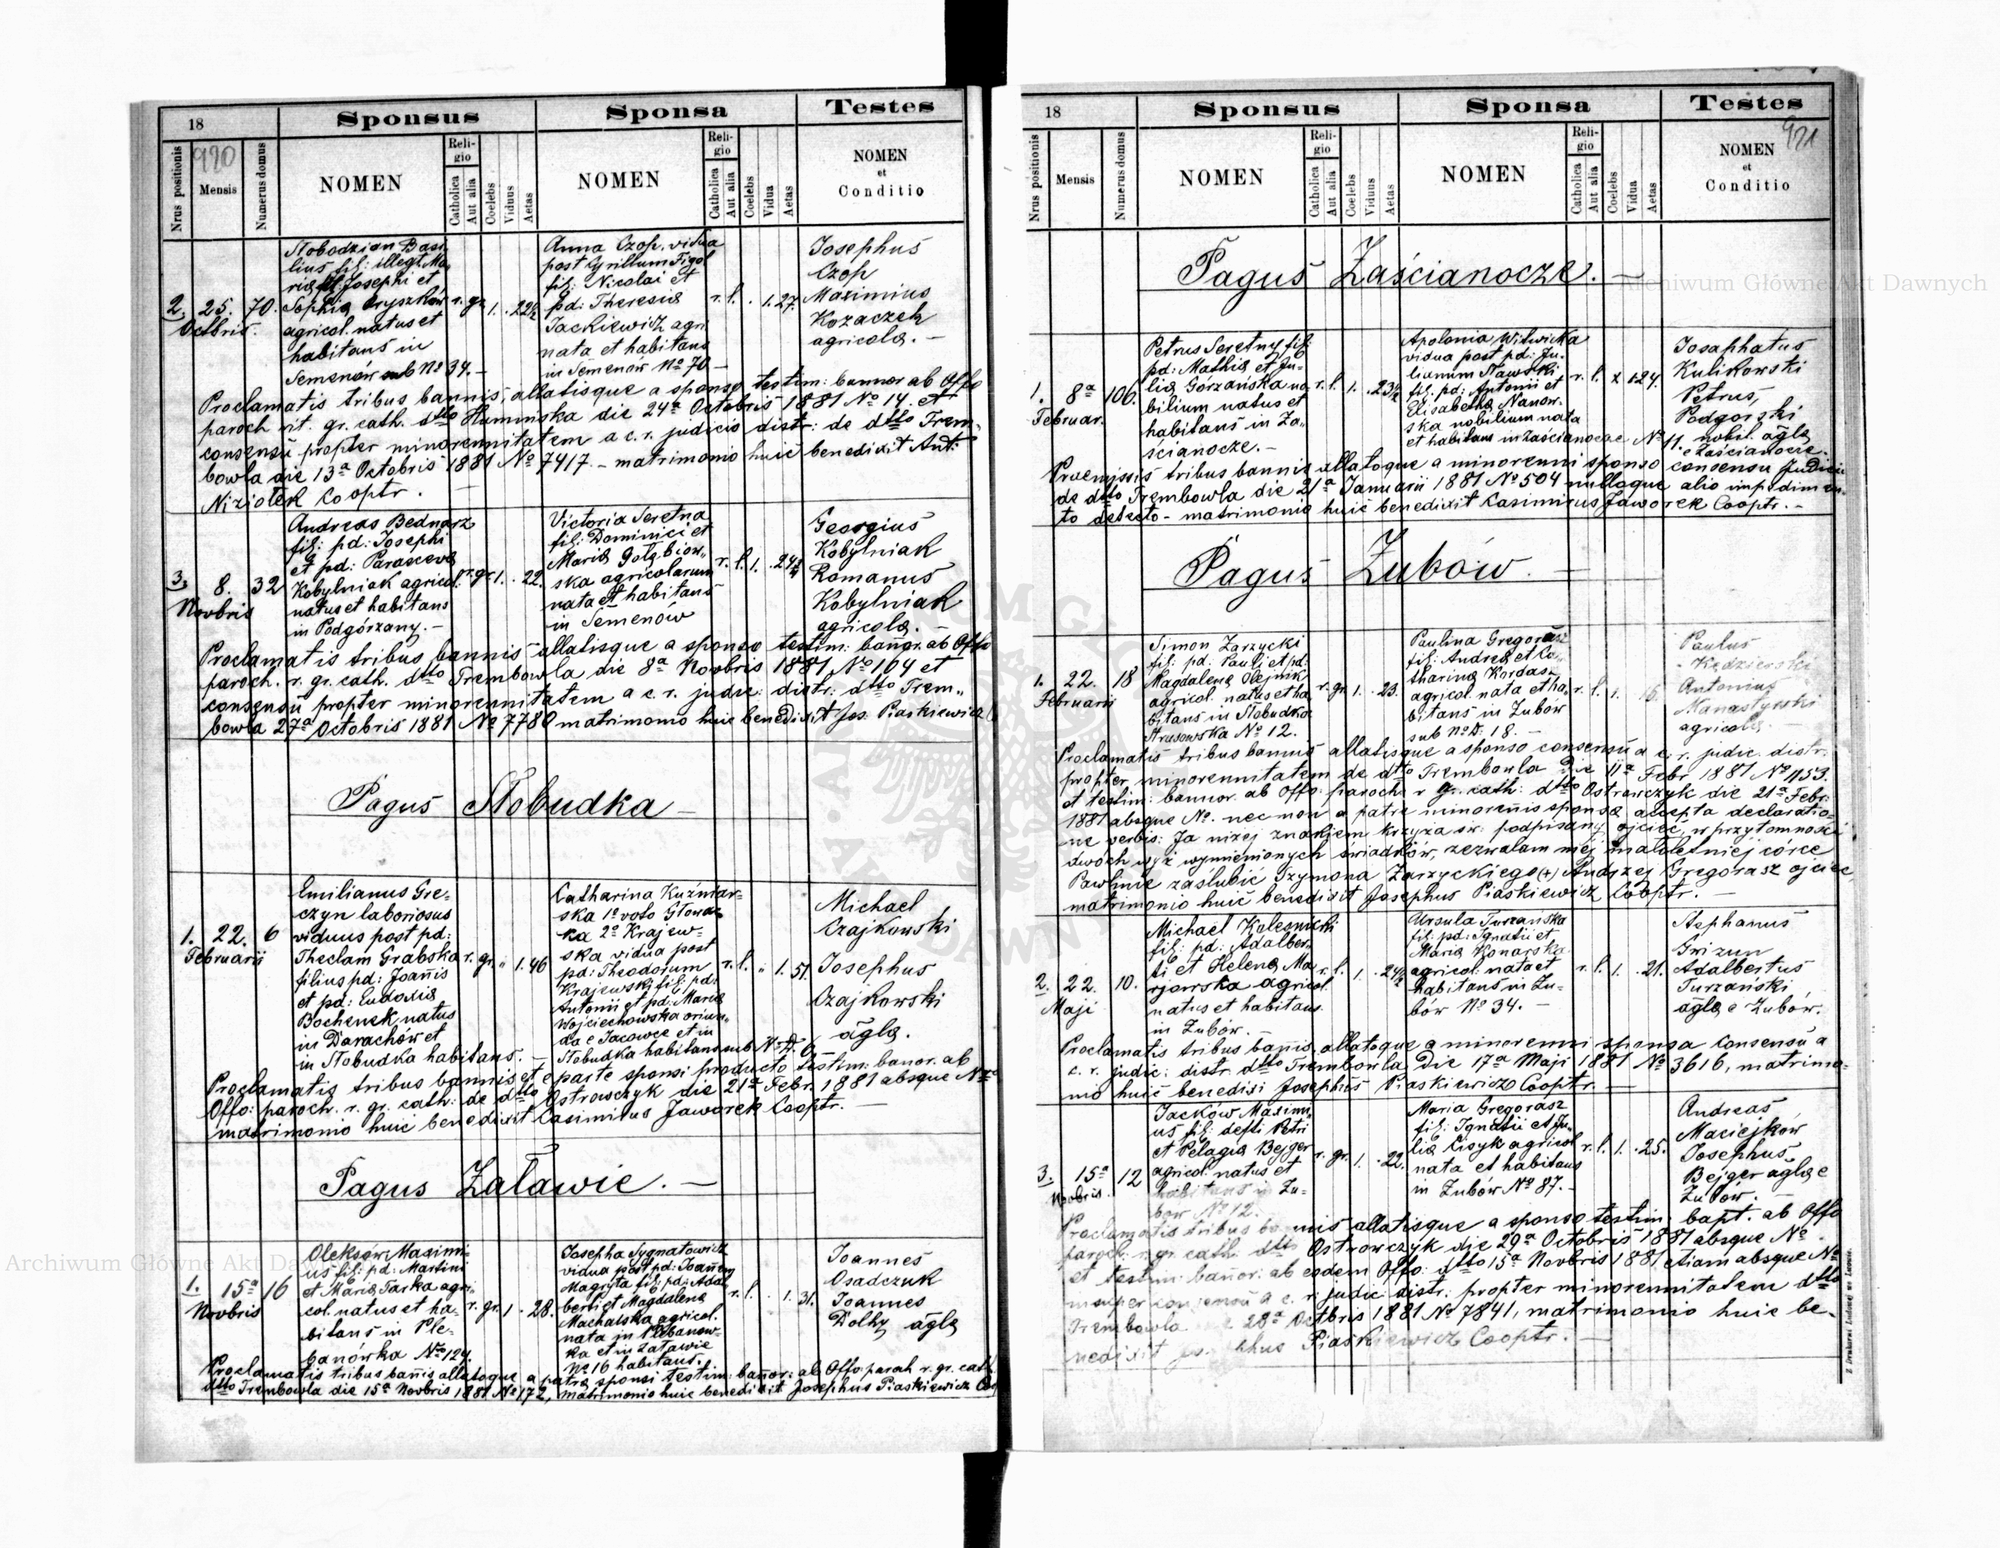 18
Sponsus
Sponsa
Testes
Nrus positionis
920
Mensis
Numerus domus
NOMEN
Religio
Catholica
Aut alia
Coelebs
Viduus
Aetas
NOMEN
Religio
Catholica
Aut alia
Coelebs
Vidua
Aetas
NOMEN
et
Conditio
2. 25. 70.
Octbris.
Słobodzian Basi-
lius fil: illegt. Ma-
Josephi et
Sophia
agricol. natus et
habitans in
Semenów sub No 34. -
r. gr. 1. . 22½
Anna Czop, vidua
post Cyrillum Figol
fil: Nicolai et
pd: Theresia
Jackiewicz agri.
nata et habitans
in Semenów No 70 -
r. l. . 1. 27.
Josephus
Czop
Maximius
Kozaczek
agricolæ. -
Proclamatis tribus bannis, allatisque a sponso testim: bannor ab Offo
paroch rit. gr. cath. dtto Humniska die 24a Octobris 1881 No 14. et
consensu propter minorennitatem a c. r. judicio distr: de dtto Trem-
bowla die 13a Octobris 1881 No 7417. - matrimonio huic benedixit Ant:
Niziołek Cooptr. -
3. 8. 32
Novbris
Andreas Bednarz
fil: pd: Josephi
et pd: Parasceva
Kobylniak agricol.
natus et habitans
in Podgórzany. -
r. gr. 1. . 22.
Victoria Seretna
fil: Dominici et
Maria Gołębiow-
ska agricolarum
nata et habitans
in Semenów
r. l. 1. . 24
Georgius
Kobylniak
Romanus
Kobylniak
agricolæ. -
Proclamatis tribus bannis allatisque a sponso testim: banor. ab Offo
paroch. r. gr. cath. dtto Trembowla die 8a Novbris 1881 No 164 et
consensu propter minorennitatem a c. r. judic: distr: dtto Trem-
bowla 27a Octobris 1881 No 7780 matrimonio huic benedixit Jos. Piaskiewicz
Pagus Słobudka -
1. 22. 6
Februarii
Emilianus Gre-
czyn laboriosus
viduus post pd:
Theclam Grabska
filius pd: Joannis
et pd: Eudoxia
Bochenek natus
in Darachów et
in Słobudka habitans. -
r. gr. " 1. 46
Catharina Kuźmiar-
ska 1o voto Głowac-
ka 2o Krajew-
ska vidua post
pd: Theodorum
Krajewski fil: pd:
Antonii et pd: Maria
Wojciechowska oriun-
da e Jacowce et in
Słobudka habitans sub N. D. 6
r. l. " 1. 51.
Michael
Czajkowski
Josephus
Czajkowski
aglæ.
Proclamatis tribus bannis et e parte sponsi producto testim: banor. ab
Offo: paroch. r. gr. cath: de dtto Ostrowczyk die 21a Febr. 1881 absque No
matrimonio huic benedixit Casimirus Jaworek Cooptr. -
Pagus Załawie. -
1. 15a 16
Novbris
Oleksów Maximi-
us fil: pd: Martini
et Maria Tarka agri-
col. natus et ha-
bitans in Ple-
banówka No 124.
r. gr. 1 . 28.
Josepha Sygnatowicz
vidua post pd: Joannem
Magryta fil: pd: Adal
berti et Magdalena
Machalska agricol.
nata in Plebanow-
ka et in Załawie
No 16 habitans.
r. l. . 1. 31.
Joannes
Osadczuk
Joannes
Dolhy aglæ
Proclamatis tribus banis allatoque a patre sponsi testim: banor: ab Offo: paroh r. gr. cath
dtto Trembowla die 15a Novbris 1881 No 172, matrimonio huic benedixit Josephus Piaskiewicz Coo
18
Sponsus
Sponsa
Testes
921
Nrus positionis
Mensis
Numerus domus
NOMEN
Religio
Catholica
Aut alia
Coelebs
Viduus
Aetas
NOMEN
Religio
Catholica
Aut alia
Coelebs
Vidua
Aetas
NOMEN
et
Conditio
Pagus Zaścianocze. -
1. 8a 106.
Februar.
Petrus Seretny fil:
pd: Mathia et Ju-
lia Górzańska no-
bilium natus et
habitans in Za-
ścianocze. -
r. l. 1. . 23½
Apolonia Witwicka
vidua post pd: Ju-
lianum Nawolski
fil: pd: Antonii et
Elisabetha Nanow-
ska nobilium nata
et habitans in Zaścianocze No 11.
r. l. x 1. 24.
Josaphatus
Kulikowski
Petrus,
Podgorski
nobil. aglæ
e Zaścianocze.
Præmissis tribus bannis allatoque a minorenni sponso consensu Judicii
de dtto Trembowla die 21a Januarii 1881 No 504 nulloque alio impedimen-
to detecto - matrimonio huic benedixit Casimirus Jaworek Cooptr. -
Pagus Zubów. -
1. 22. 18
Februarii
Simon Zarzycki
fil: pd: Pauli et pd:
Magdalena Olejnik
agricol. natus et ha
bitans in Słobudka
Strusowska No 12.
r. gr. 1. . 23.
Paulina Gregorasz
fil: Andrea et Ca-
tharina Kordasz
agricol. nata et ha-
bitans in Zubów
sub No D. 18. -
r. l. 1. 16
Paulus
Kędzierski
Antonius
Manastyrski
agricolæ -
Proclamatis tribus bannis allatisque a sponso consensu a c. r. judic. distr.
propter minorennitatem de dtto Trembowla die 11a Febr 1881 No 1153.
et testim: bannor. ab Offo: paroch: r gr. cath: dtto Ostrowczyk die 21a Febr:
1881 absque No. nec non a patre minorennis sponsæ accepta declaratio-
ne verbis: Ja niżej znakiem krzyża św. podpisany ojciec, w przytomności
dwóch wyż wymienionych świadków, zezwalam mej małoletniej córce
Pawlinie zaślubić Szymona Zarzyckiego (+) Andrzej Gregorasz ojciec
matrimonio huic benedixit Josephus Piaskiewicz Cooptr. -
2. 22. 10.
Maji
Michael Kolesnicki
fil: pd: Adalber-
ti et Helena Ma-
rjowska agricol.
natus et habitans
in Zubów. -
r. l. 1. . 24½
Ursula Turzańska
fil: pd: Ignatii et
Maria Konarska
agricol. nata et
habitans in Zu-
bów No 34. -
r. l. 1. . 21.
Stephanus
Grizun
Adalbertus
Turzański
aglæ e Zubów.
Proclamatis tribus banis allatoque a minorenni sponsa consensu a
c. r. judic: distr. dtto Trembowla die 17a Maji 1881 No 3616, matrimo-
nio huic benedixi Josephus Piaskiewicz Cooptr. -
3. 15a 12
Novbris
Jacków Maximi-
us fil: defti Petri
et Pelagia Bejger
agricol. natus et
habitans in Zu-
bów No 12.
r. gr. 1. . 22.
Maria Gregorasz
fil: Ignatii et Ju-
lia Lisyk agricol
nata et habitans
in Zubów No 87. -
r. l. 1. . 25.
Andreas
Maciejków
Josephus
Bejger aglæ e
Zubow. -
Proclamatis tribus bannis allatisque a sponso testim: bapt. ab Offo
paroch: r. gr. cath. dtto Ostrowczyk die 29a Octobris 1881 absque No -
et testim: banor: ab eodem Offo: dtto 15a Novbris 1881 etiam absque No
insuper consensu a c. r. judic distr: propter minorennitatem dtto
Trembowla die 28a Octbris 1881 No 7841, matrimonio huic be-
nedixit Josephus Piaskiewicz Cooptr. -
Z Drukarni Ludowej we Lwowie.
Archiwum Główne Akt Dawnych
Archiwum Główne Akt Dawnych